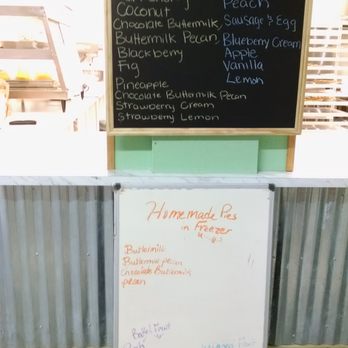 Coconut
Chocolate Buttermilk
Buttermilk Pecan
Blackberry
Fig
Pineapple
Chocolate Buttermilk Pecan
Strawberry Cream
Strawberry Lemon
Peach
Sausage & Egg
Blueberry Cream
Apple
Vanilla
Lemon
Homemade Pies
in Freezer
Buttermilk
Buttermilk pecan
Chocolate Buttermilk
pecan